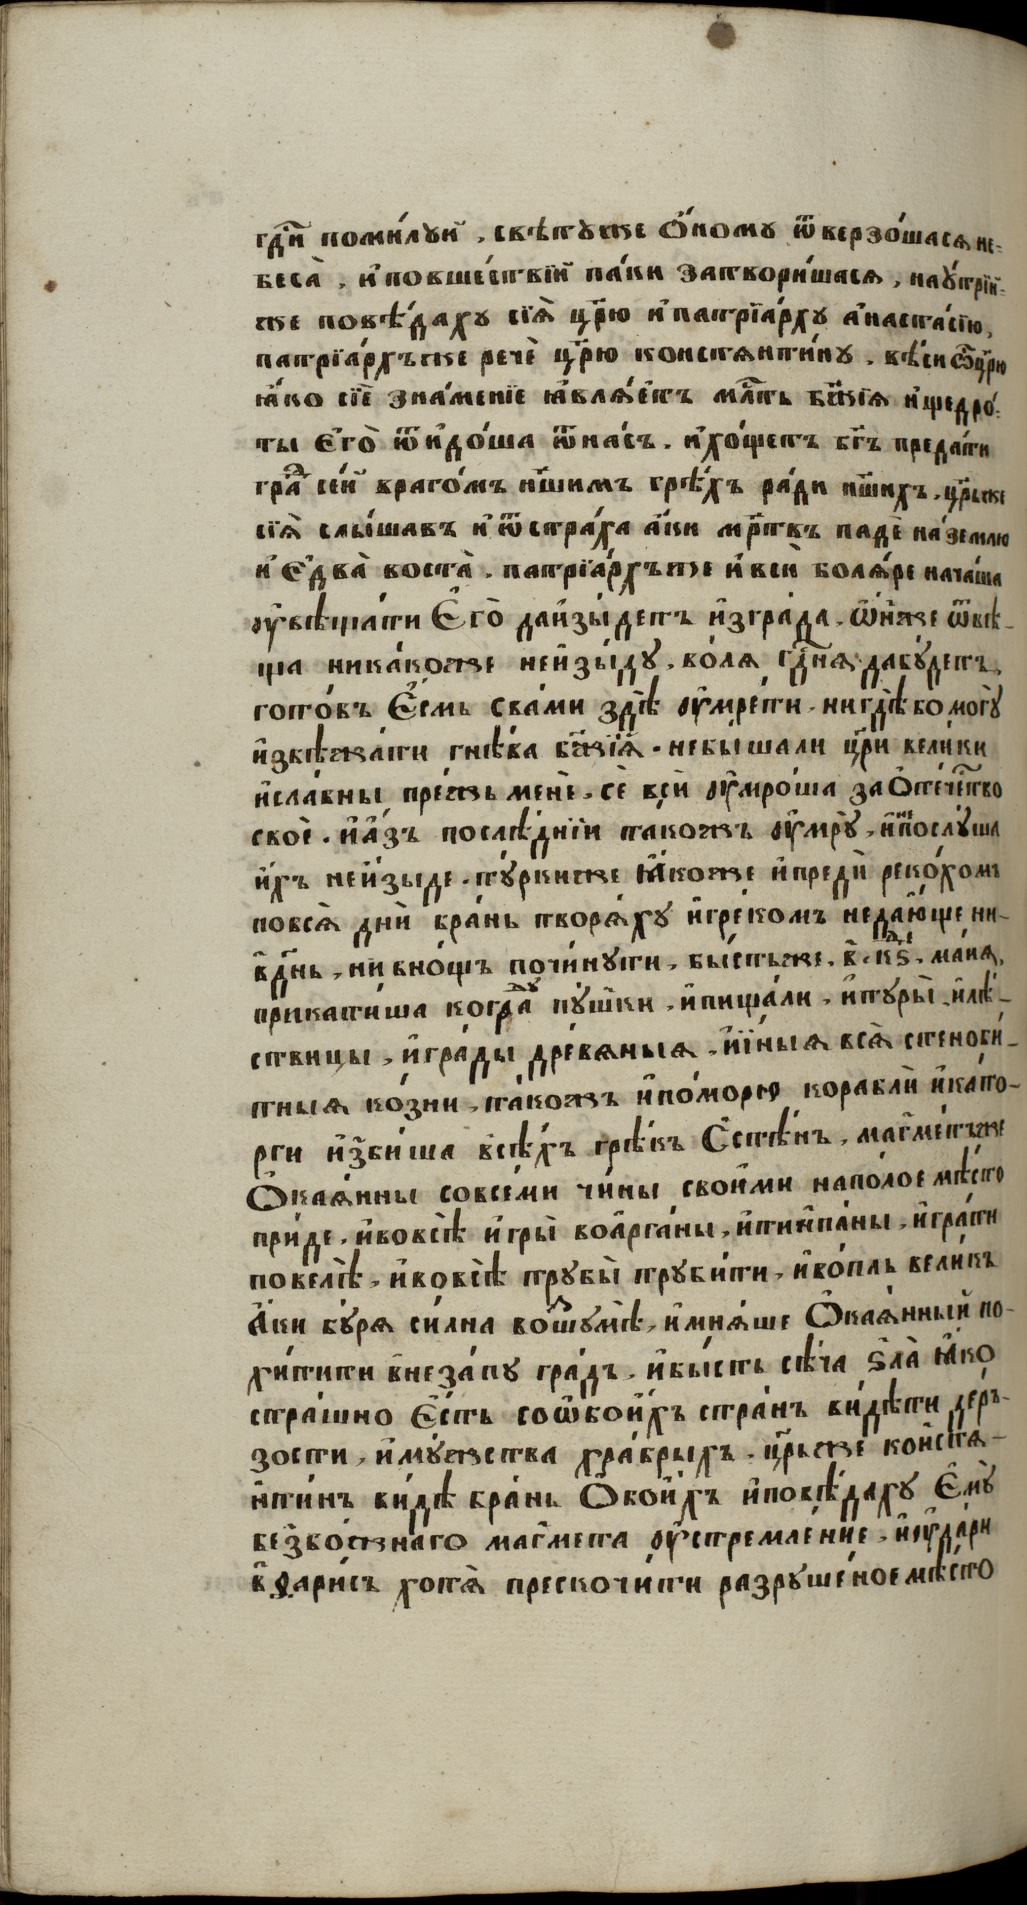 гд҇и поми́луй , свѣ́ту же о́ному ѿверзо́шася не-
беса̀ , и҆ повше́ствїи па́ки затвори́шася , на у҆трїй-
же повѣ́даху сїя̀ цр҃ю и҆ патрїа́рху а҆наста́сїю ,
патрїа́рхъ же речѐ цр҃ю констянти́ну . вѣ́си ѽ цр҃ю
ꙗ҆́ко сїѐ зна́менїе ꙗ҆вля́етъ мл҇ть бж҃їя и҆ щедро́-
ты є҆го̀ ѿидо́ша ѿ на́съ . и҆ хо́щетъ бг҃ъ преда́ти
гра́д се́й враго́мъ н҃шимъ грѣ́хъ ра́ди н҃шихъ . цр҃ь же
сїя̀ слы́шавъ и҆ ѿ стра́ха а҆́ки мр҃твъ падѐ на́ землю
и҆ є҆два̀ воста̀ . патрїа́рхъ же и҆ всѝ боля́ре нача́ша
ᲂу҆вѣща́ти є҆го̀ да и҆зы́детъ и҆з гра́да . ѻ҆́нже ѿвѣ-
ща ника́коже не и҆зы́ду , во́ля гд҇ня да бу́детъ ,
гото́въ є҆́смь с ва́ми здѣ̀ ᲂу҆мре́ти . нигдѣ́ бо могу̀
и҆збѣжа́ти гнѣ́ва бж҃їя . не бы́ша ли цр҃и вели́ки
и҆ сла́вны пре́жь менѐ . сѐ всѝ ᲂу҆мро́ша за ѻ҆те́чество
своѐ . и҆ а҆́зъ послѣ́днїи та́кожъ ᲂу҆мру̀ , и҆ не послу́ша
и҆́хъ не и҆зы́де . ту́рки же ꙗ҆́коже и҆ предѝ реко́хомъ
по вся̀ днѝ бра́нь творя́ху и҆ гре́комъ не даю́ще ни-
в дн҃ь , ни в но́щъ почи́нути , бы́сть же . в . к҃ѕ . ма́ия ,
прикати́ша когда́ пу́шки , и҆ пища́ли , и҆ туры̀ . и҆ лѣ́-
ствицы , и҆ гра́ды древя́ныя , и҆ и҆́ныя вся̀ стеноби́-
тныя ко́зни , та́кожъ и҆ по́ морю кораблѝ и҆ като-
рги и҆ зби́ша всѣ́хъ грѣ́къ с стѣ́нъ , магме́тъ же
ѻ҆кая́нны со все́ми чи́ны свои́ми на поло́е мѣ́сто
прїи́де . и҆ во всѣ̀ и҆́гры во а҆рга́ны , и҆ тимпа́ны , и҆гра́ти
повелѣ̀ , и҆ во всѣ̀ трубы̀ труби́ти , и҆ во́пль вели́къ
а҆́ки бу́ря си́лна вошумѣ̀ , и҆ мня́ше ѻ҆кая́нный по-
хи́тити внеза́пу гра́дъ . и҆ бы́сть сѣ́ча ѕла̀ ꙗ҆́ко
стра́шно є҆́сть со ѻ҆бои́хъ стра́нъ ви́дѣти дер́ъ-
зости , и҆ му́жества хра́брыхъ . цр҃ь же констя-
нти́нъ ви́дѣ бра́нь ѻ҆бои́хъ и҆ повѣ́даху є҆му̀
безбо́жнаго магме́та ᲂу҆стремле́ние , и҆ ᲂу҆да́ри
в ѳари́съ хотя̀ прескочи́ти разруше́ное мѣ́сто